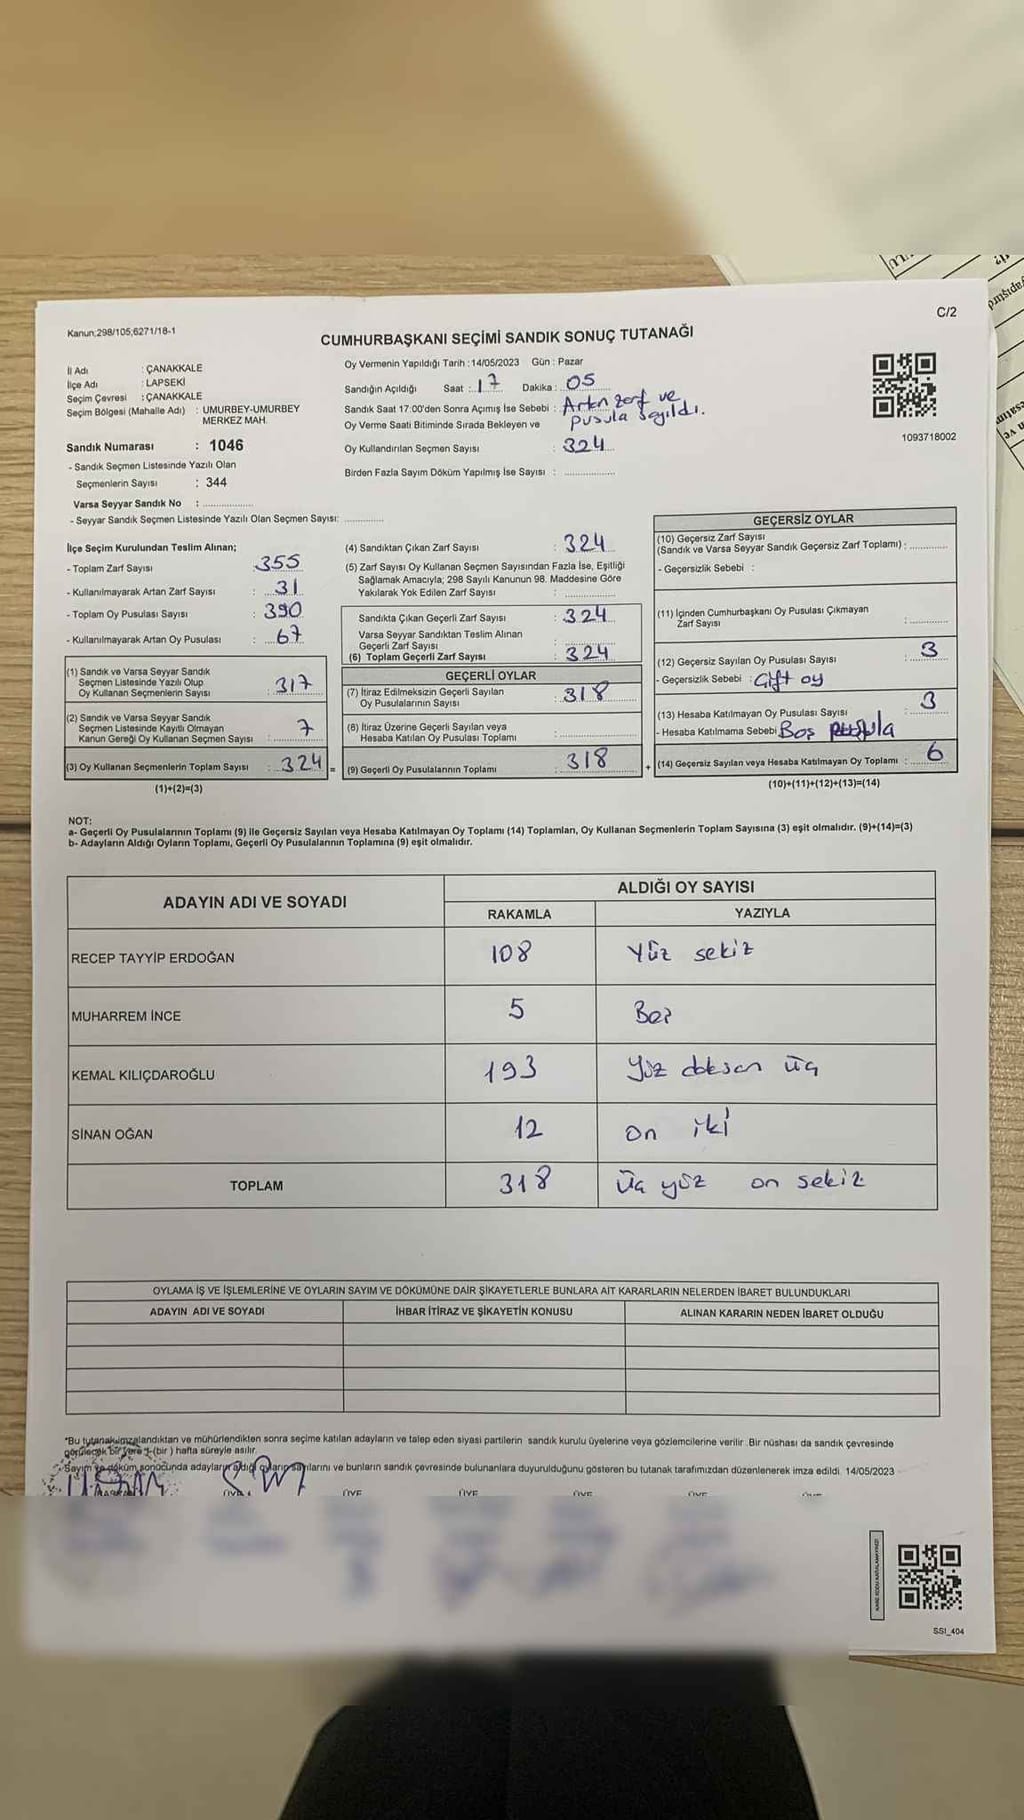 C/2
Kanun:298/105,6271/18-1
CUMHURBAŞKANI SEÇİMİ SANDIK SONUÇ TUTANAĞI
İl Adı : ÇANAKKALE
İlçe Adı : LAPSEKİ
Seçim Çevresi : ÇANAKKALE
Seçim Bölgesi (Mahalle Adı) : UMURBEY-UMURBEY
MERKEZ MAH.
Sandık Numarası : 1046
- Sandık Seçmen Listesinde Yazılı Olan
Seçmenlerin Sayısı : 344
Varsa Seyyar Sandık No : ..............
- Seyyar Sandık Seçmen Listesinde Yazılı Olan Seçmen Sayısı: ............
Oy Vermenin Yapıldığı Tarih : 14/05/2023 Gün : Pazar
Sandığın Açıldığı Saat : 17 Dakika : 05
Sandık Saat 17:00'den Sonra Açımış İse Sebebi : Artan zarf ve
Oy Verme Saati Bitiminde Sırada Bekleyen ve pusula sayıldı.
Oy Kullandırılan Seçmen Sayısı : 324
Birden Fazla Sayım Döküm Yapılmış İse Sayısı : ..............
1093718002
İlçe Seçim Kurulundan Teslim Alınan;
- Toplam Zarf Sayısı : 355
- Kullanılmayarak Artan Zarf Sayısı : 31
- Toplam Oy Pusulası Sayısı : 390
- Kullanılmayarak Artan Oy Pusulası : 67
(1) Sandık ve Varsa Seyyar Sandık
Seçmen Listesinde Yazılı Olup
Oy Kullanan Seçmenlerin Sayısı : 317
(2) Sandık ve Varsa Seyyar Sandık
Seçmen Listesinde Kayıtlı Olmayan
Kanun Gereği Oy Kullanan Seçmen Sayısı : 7
(3) Oy Kullanan Seçmenlerin Toplam Sayısı : 324 =
(1)+(2)=(3)
(4) Sandıktan Çıkan Zarf Sayısı : 324
(5) Zarf Sayısı Oy Kullanan Seçmen Sayısından Fazla İse, Eşitliği
Sağlamak Amacıyla; 298 Sayılı Kanunun 98. Maddesine Göre
Yakılarak Yok Edilen Zarf Sayısı : ..............
Sandıkta Çıkan Geçerli Zarf Sayısı : 324
Varsa Seyyar Sandıktan Teslim Alınan
Geçerli Zarf Sayısı : ..............
(6) Toplam Geçerli Zarf Sayısı : 324
GEÇERLİ OYLAR
(7) İtiraz Edilmeksizin Geçerli Sayılan
Oy Pusulalarının Sayısı : 318
(8) İtiraz Üzerine Geçerli Sayılan veya
Hesaba Katılan Oy Pusulası Toplamı : ..............
(9) Geçerli Oy Pusulalarının Toplamı : 318 +
GEÇERSİZ OYLAR
(10) Geçersiz Zarf Sayısı
(Sandık ve Varsa Seyyar Sandık Geçersiz Zarf Toplamı) : ............
- Geçersizlik Sebebi :
(11) İçinden Cumhurbaşkanı Oy Pusulası Çıkmayan
Zarf Sayısı : ............
(12) Geçersiz Sayılan Oy Pusulası Sayısı : 3
- Geçersizlik Sebebi : Çift oy
(13) Hesaba Katılmayan Oy Pusulası Sayısı : 3
- Hesaba Katılmama Sebebi : Boş pusula
(14) Geçersiz Sayılan veya Hesaba Katılmayan Oy Toplamı : 6
(10)+(11)+(12)+(13)=(14)
NOT:
a- Geçerli Oy Pusulalarının Toplamı (9) ile Geçersiz Sayılan veya Hesaba Katılmayan Oy Toplamı (14) Toplamları, Oy Kullanan Seçmenlerin Toplam Sayısına (3) eşit olmalıdır. (9)+(14)=(3)
b- Adayların Aldığı Oyların Toplamı, Geçerli Oy Pusulalarının Toplamına (9) eşit olmalıdır.
ADAYIN ADI VE SOYADI
ALDIĞI OY SAYISI
RAKAMLA YAZIYLA
RECEP TAYYİP ERDOĞAN 108 Yüz sekiz
MUHARREM İNCE 5 Beş
KEMAL KILIÇDAROĞLU 193 Yüz doksan üç
SİNAN OĞAN 12 on iki
TOPLAM 318 Üç yüz on sekiz
OYLAMA İŞ VE İŞLEMLERİNE VE OYLARIN SAYIM VE DÖKÜMÜNE DAİR ŞİKAYETLERLE BUNLARA AİT KARARLARIN NELERDEN İBARET BULUNDUKLARI
ADAYIN ADI VE SOYADI İHBAR İTİRAZ VE ŞİKAYETİN KONUSU ALINAN KARARIN NEDEN İBARET OLDUĞU
*Bu tutanak imzalandıktan ve mühürlendikten sonra seçime katılan adayların ve talep eden siyasi partilerin sandık kurulu üyelerine veya gözlemcilerine verilir. Bir nüshası da sandık çevresinde
görülecek bir yere 1 (bir) hafta süreyle asılır.
- Sayım ve döküm sonucunda adayların aldığı oyların sayılarını ve bunların sandık çevresinde bulunanlara duyurulduğunu gösteren bu tutanak tarafımızdan düzenlenerek imza edildi. 14/05/2023
ÜYE ÜYE ÜYE ÜYE ÜYE
SSI_404